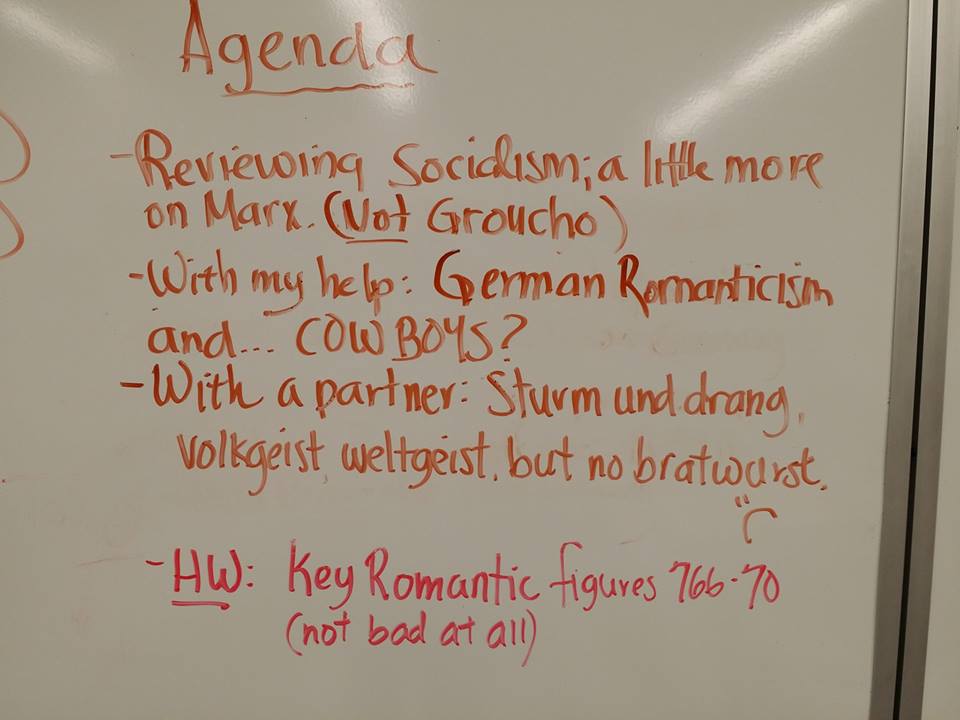 Agenda
-Reviewing Socialism; a little more
on Marx. (Not Groucho)
-With my help: German Romanticism
and... COWBOYS?
-With a partner: Sturm und drang,
volkgeist, weltgeist, but no bratwurst.
-HW: Key Romantic figures 766-70
(not bad at all)